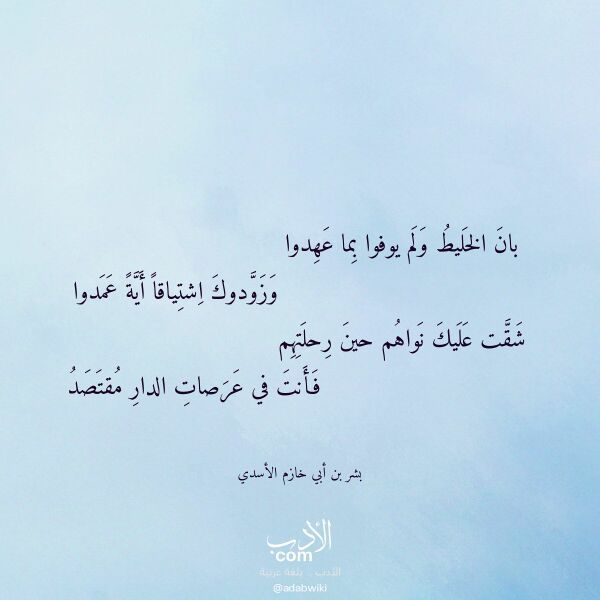 بانَ الخَليطُ وَلَم يوفوا بِما عَهِدوا
وَزَوَّدوكَ اِشتِياقاً أَيَّةً عَمَدوا
شَقَّت عَلَيكَ نَواهُم حينَ رِحلَتِهِم
فَأَنتَ في عَرَصاتِ الدارِ مُقتَصَدُ
بشر بن أبي خازم الأسدي
الأدب
com
الأدب .. بلغة عربية
@adabwiki